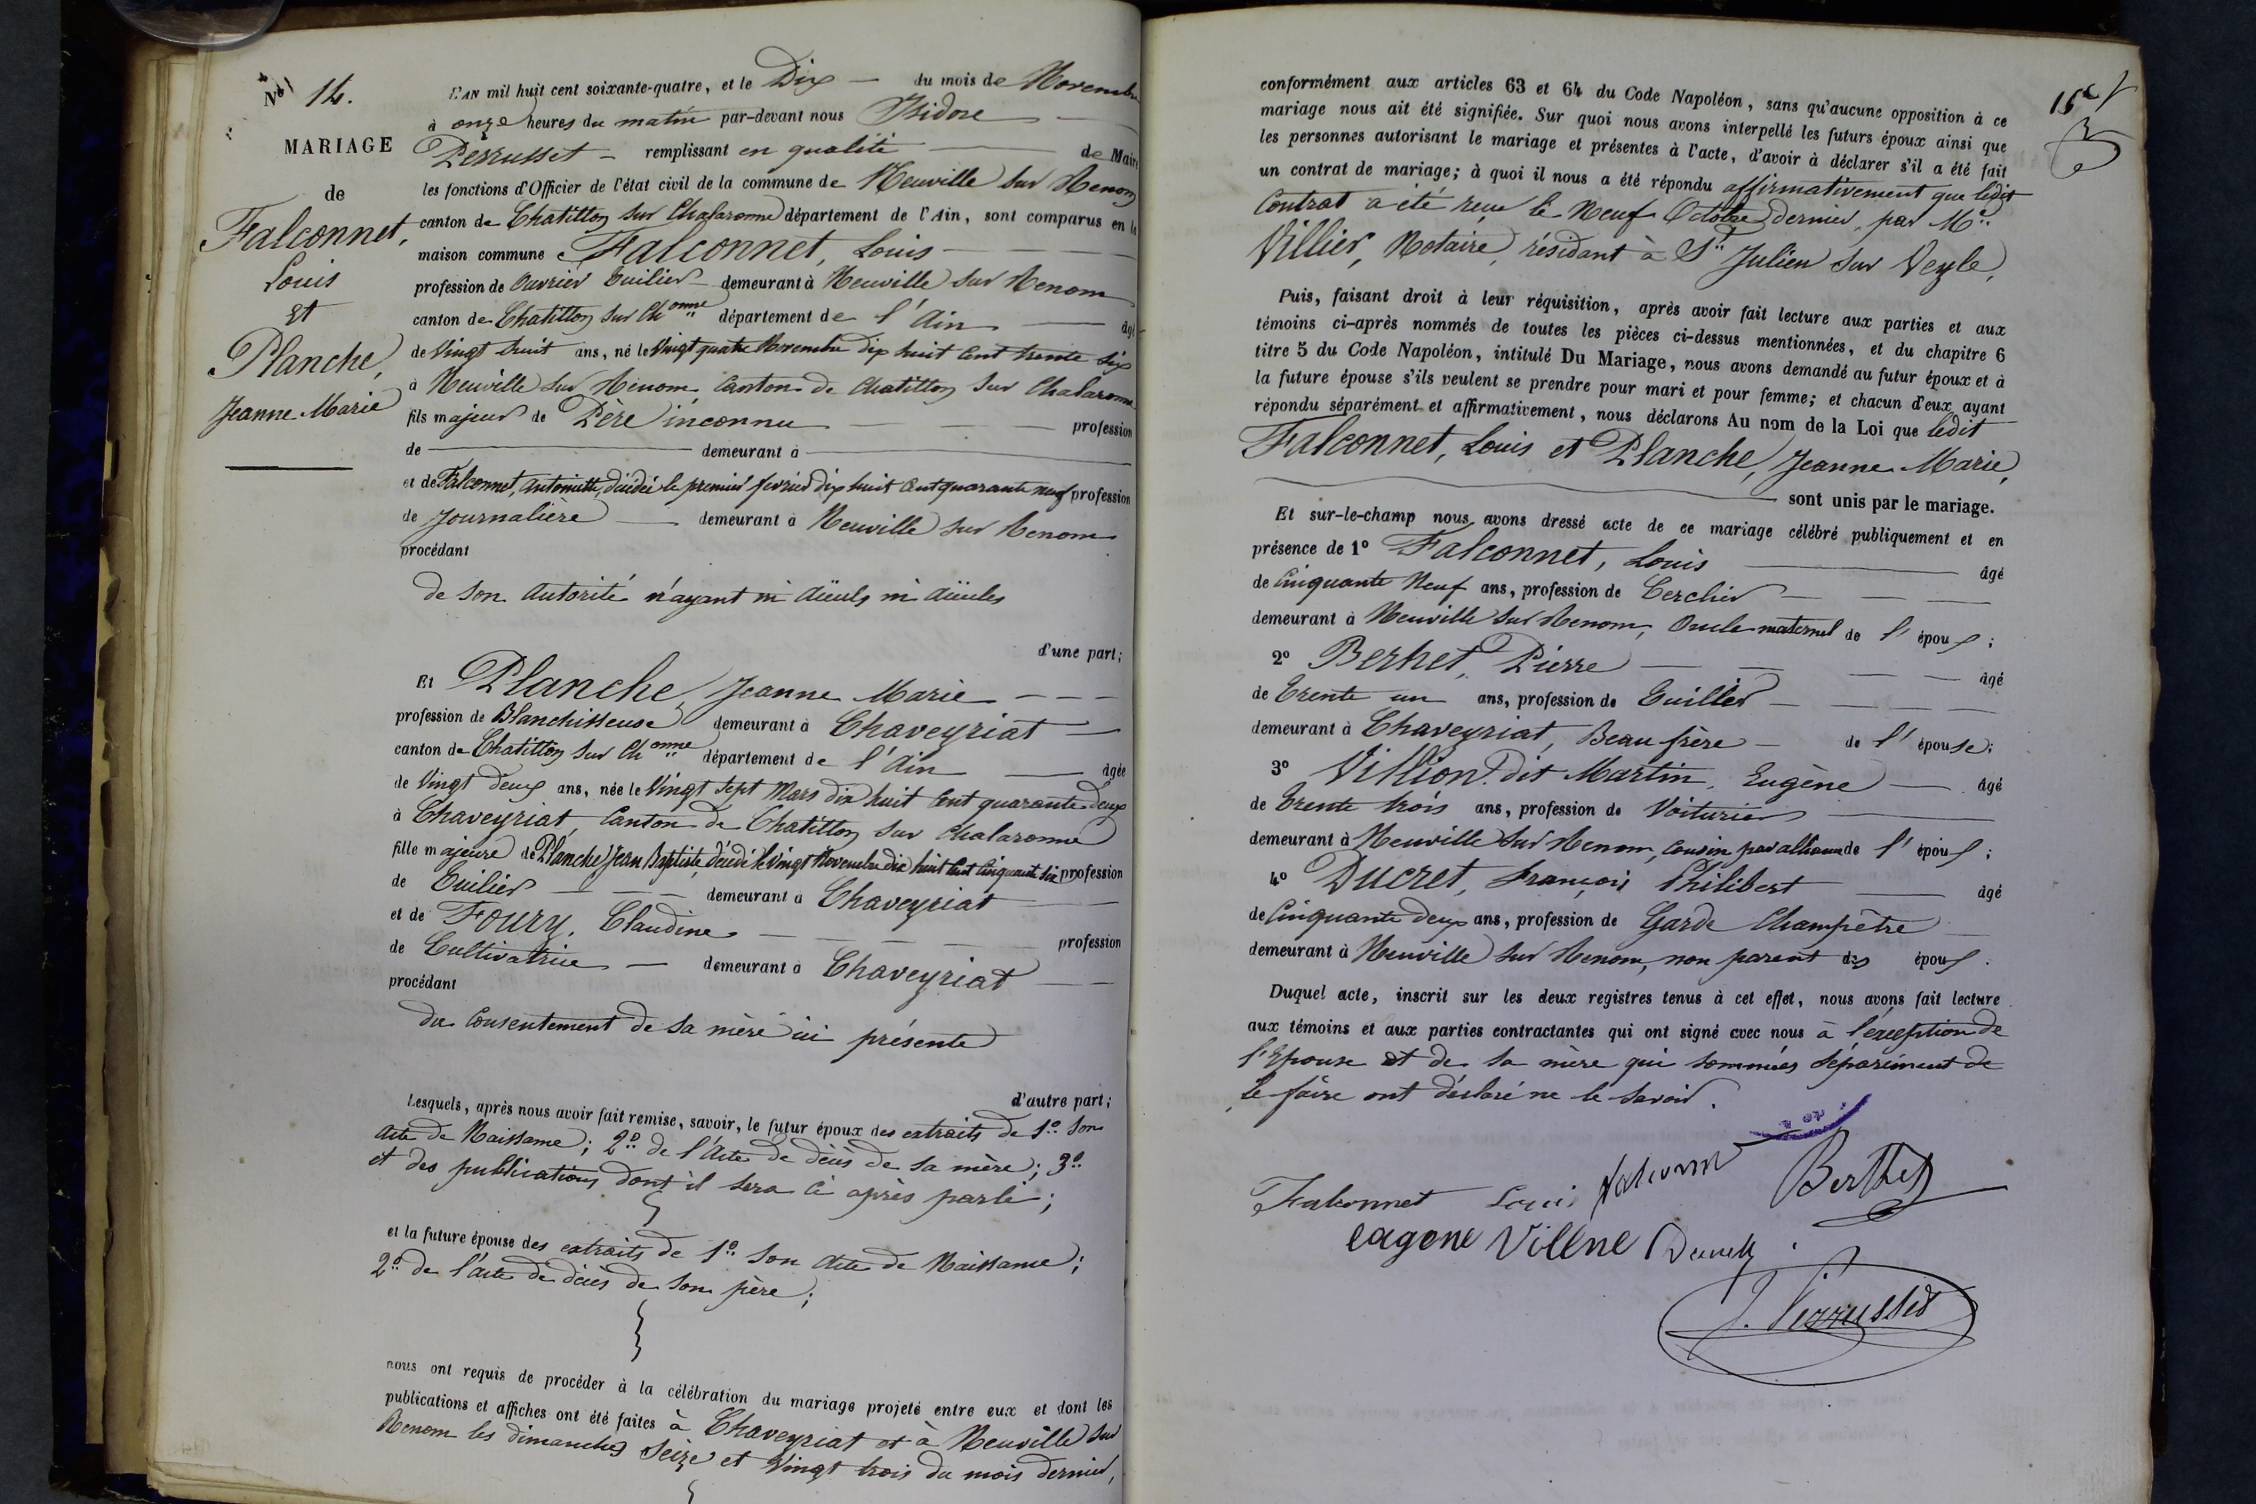 No 14.
MARIAGE
de
Falconnet,
Louis
et
Planche,
Jeanne Marie
L'AN mil huit cent soixante-quatre, et le Dix du mois de Novembre
à onze heures du matin par-devant nous Isidore
Perrusset remplissant en qualité de Maire
les fonctions d'Officier de l'état civil de la commune de Neuville sur Renom
canton de Chatillon sur Chalaronne département de l'Ain, sont comparus en la
maison commune Falconnet, Louis
profession de Ouvrier Tuilier demeurant à Neuville sur Renom
canton de Chatillon sur Chonne département de l'Ain âgé
de Vingt huit ans, né le Vingt quatre Novembre dix huit cent trente six
à Neuville sur Renom, Canton de Chatillon sur Chalaronne
fils majeur de Père inconnu profession
de demeurant à
et de Falconnet, Antoinette, décédée le premier février dix huit cent quarante neuf profession
de Journalière demeurant à Neuville sur Renom
procédant
de son autorité n'ayant ni aïeuls ni aïeules
d'une part;
Et Planche, Jeanne Marie
profession de Blanchisseuse demeurant à Chaveyriat
canton de Chatillon sur Chonne département de l'Ain âgée
de Vingt deux ans, née le Vingt sept Mars dix huit cent quarante deux
à Chaveyriat, Canton de Chatillon sur Chalaronne
fille majeure de Planche Jean Baptiste, décédé le vingt Novembre dix huit cent cinquante six profession
de Tuilier demeurant à Chaveyriat
et de Foury, Claudine profession
de Cultivatrice demeurant à Chaveyriat
procédant
du consentement de sa mère ici présente
d'autre part;
Lesquels, après nous avoir fait remise, savoir, le futur époux des extraits de 1o Son
acte de Naissance; 2o de l'Acte de décès de sa mère; 3o
et des publications dont il sera ci après parlé;
et la future épouse des extraits de 1o Son acte de Naissance;
2o de l'acte de décès de son père;
nous ont requis de procéder à la célébration du mariage projeté entre eux et dont les
publications et affiches ont été faites à Chaveyriat et à Neuville sur
Renom les dimanches Seize et Vingt trois du mois dernier,
conformément aux articles 63 et 64 du Code Napoléon, sans qu'aucune opposition à ce
mariage nous ait été signifiée. Sur quoi nous avons interpellé les futurs époux ainsi que
les personnes autorisant le mariage et présentes à l'acte, d'avoir à déclarer s'il a été fait
un contrat de mariage; à quoi il nous a été répondu affirmativement que ledit
Contrat a été reçu le Neuf Octobre dernier, par Me
Villier, Notaire, résidant à St Julien sur Veyle,
Puis, faisant droit à leur réquisition, après avoir fait lecture aux parties et aux
témoins ci-après nommés de toutes les pièces ci-dessus mentionnées, et du chapitre 6
titre 5 du Code Napoléon, intitulé Du Mariage, nous avons demandé au futur époux et à
la future épouse s'ils veulent se prendre pour mari et pour femme; et chacun d'eux ayant
répondu séparément et affirmativement, nous déclarons Au nom de la Loi que ledit
Falconnet, Louis et Planche, Jeanne Marie,
sont unis par le mariage.
Et sur-le-champ nous avons dressé acte de ce mariage célébré publiquement et en
présence de 1o Falconnet, Louis âgé
de Cinquante Neuf ans, profession de Cerclier
demeurant à Neuville sur Renom, Oncle maternel de l'époux;
2o Berhet, Pierre âgé
de Trente un ans, profession de Tuillier
demeurant à Chaveyriat, Beau frère de l'épouse;
3o Villion dit Martin, Eugène âgé
de Trente trois ans, profession de Voiturier
demeurant à Neuville sur Renom, cousin par alliance de l'époux;
4o Ducret, François Philibert âgé
de Cinquante deux ans, profession de Garde Champêtre
demeurant à Neuville sur Renom, non parent des époux.
Duquel acte, inscrit sur les deux registres tenus à cet effet, nous avons fait lecture
aux témoins et aux parties contractantes qui ont signé avec nous à l'exception de
l'Epouse et de sa mère qui sommées séparément de
le faire ont déclaré ne le savoir.
Falconnet Louis Berthet
eagene Villne
J. Perrusset